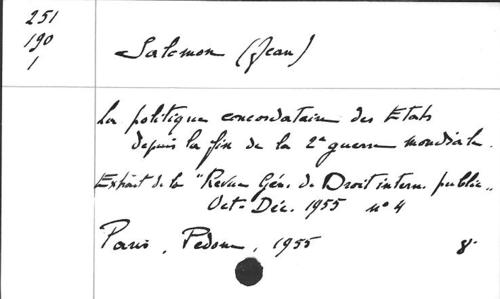 251
190
1
Salomon (Jean)
La politique concordataire des Etats
depuis la fin de la 2e guerre mondiale.
Extrait de la "Revue Gén. de Droit intern. public"
Oct-Déc. 1955 nº 4
Paris, Pedone, 1955 8º